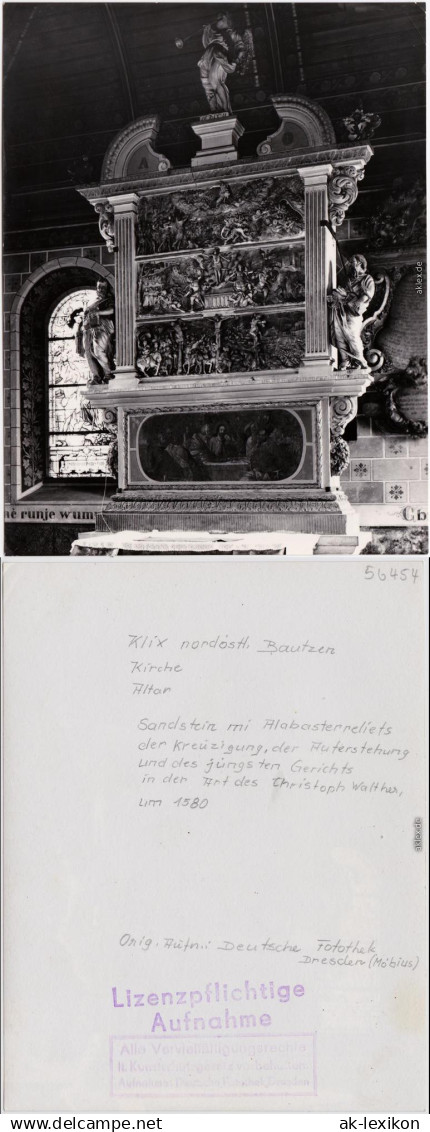 ak-lexikon.de
né runje wum
Gb
56454
Klix nordöstl. Bautzen
Kirche
Altar
Sandstein mi Alabasterreliefs
der Kreuzigung, der Auferstehung
und des jüngsten Gerichts
in der Art des Christoph Walther,
um 1580
ak-lexikon.de
Orig. Aufn.: Deutsche Fotothek
Dresden (Möbius)
Lizenzpflichtige
Aufnahme
Alle Vervielfältigungsrechte
lt. Kunstschutzgesetz vorbehalten
Aufnahme: Deutsche Fotothek Dresden
www.delcampe.net
ak-lexikon